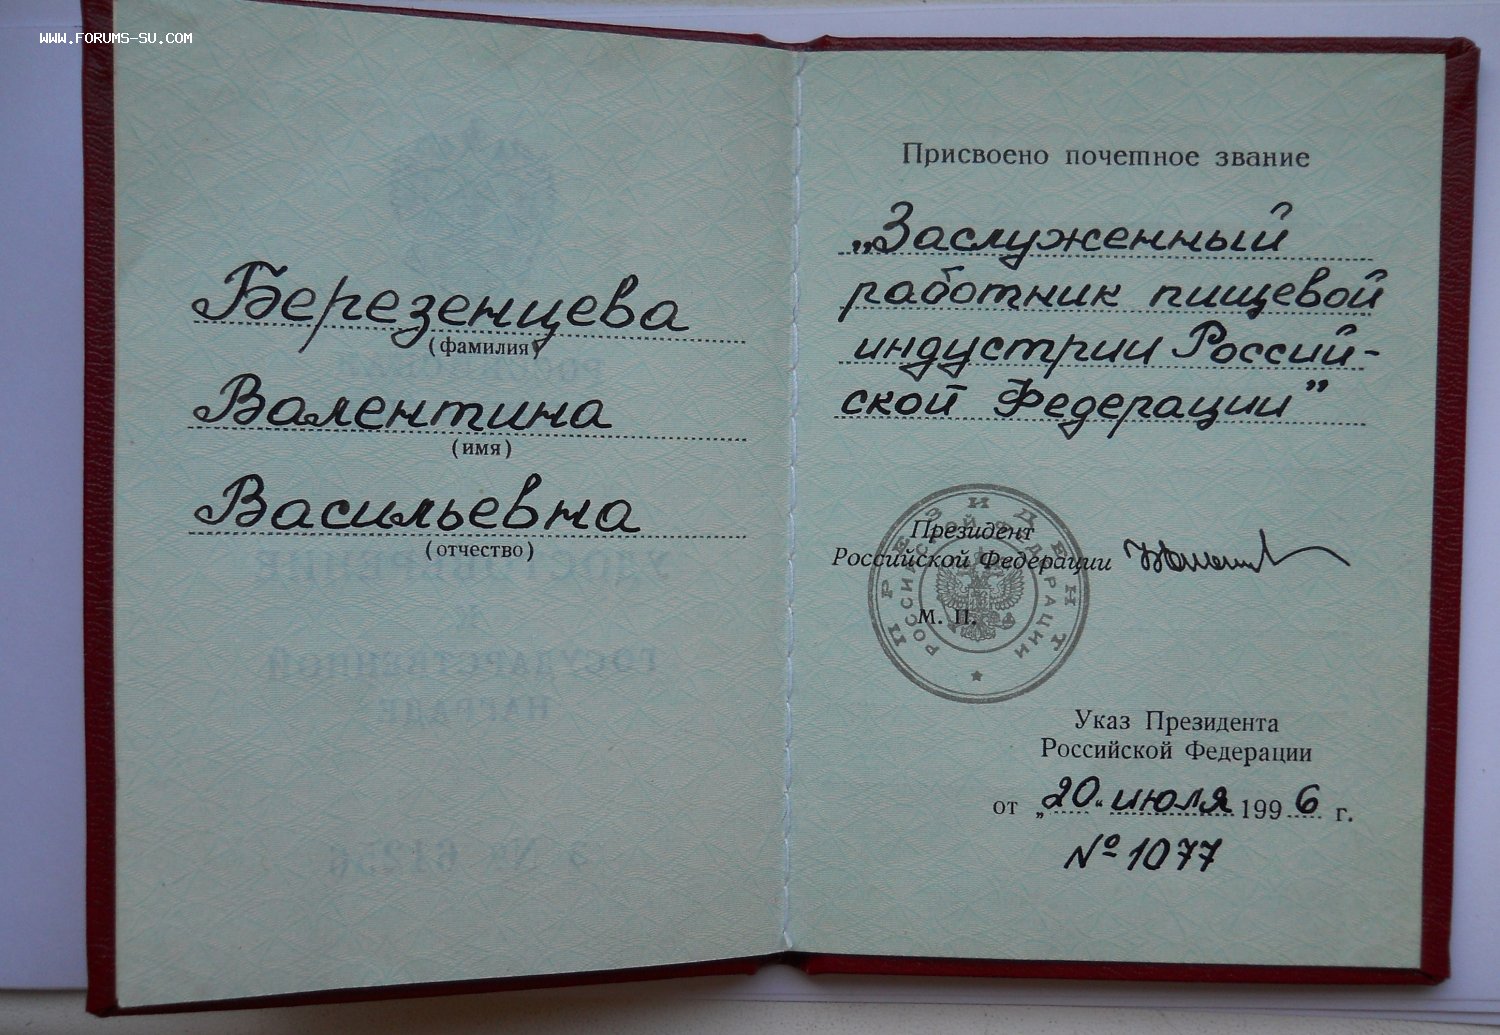 WWW.FORUMS-SU.COM
Березенцева
(фамилия)
Валентина
(имя)
Васильевна
(отчество)
УДОСТОВЕРЕНИЕ
К
ГОСУДАРСТВЕННОЙ
НАГРАДЕ
Присвоено почетное звание
„Заслуженный
работник пищевой
индустрии Россий-
ской Федерации”
ПРЕЗИДЕНТ
РОССИЙСКОЙ ФЕДЕРАЦИИ
Президент
Российской Федерации
М. П.
Указ Президента
Российской Федерации
от „20“ июля 1996 г.
№ 1077